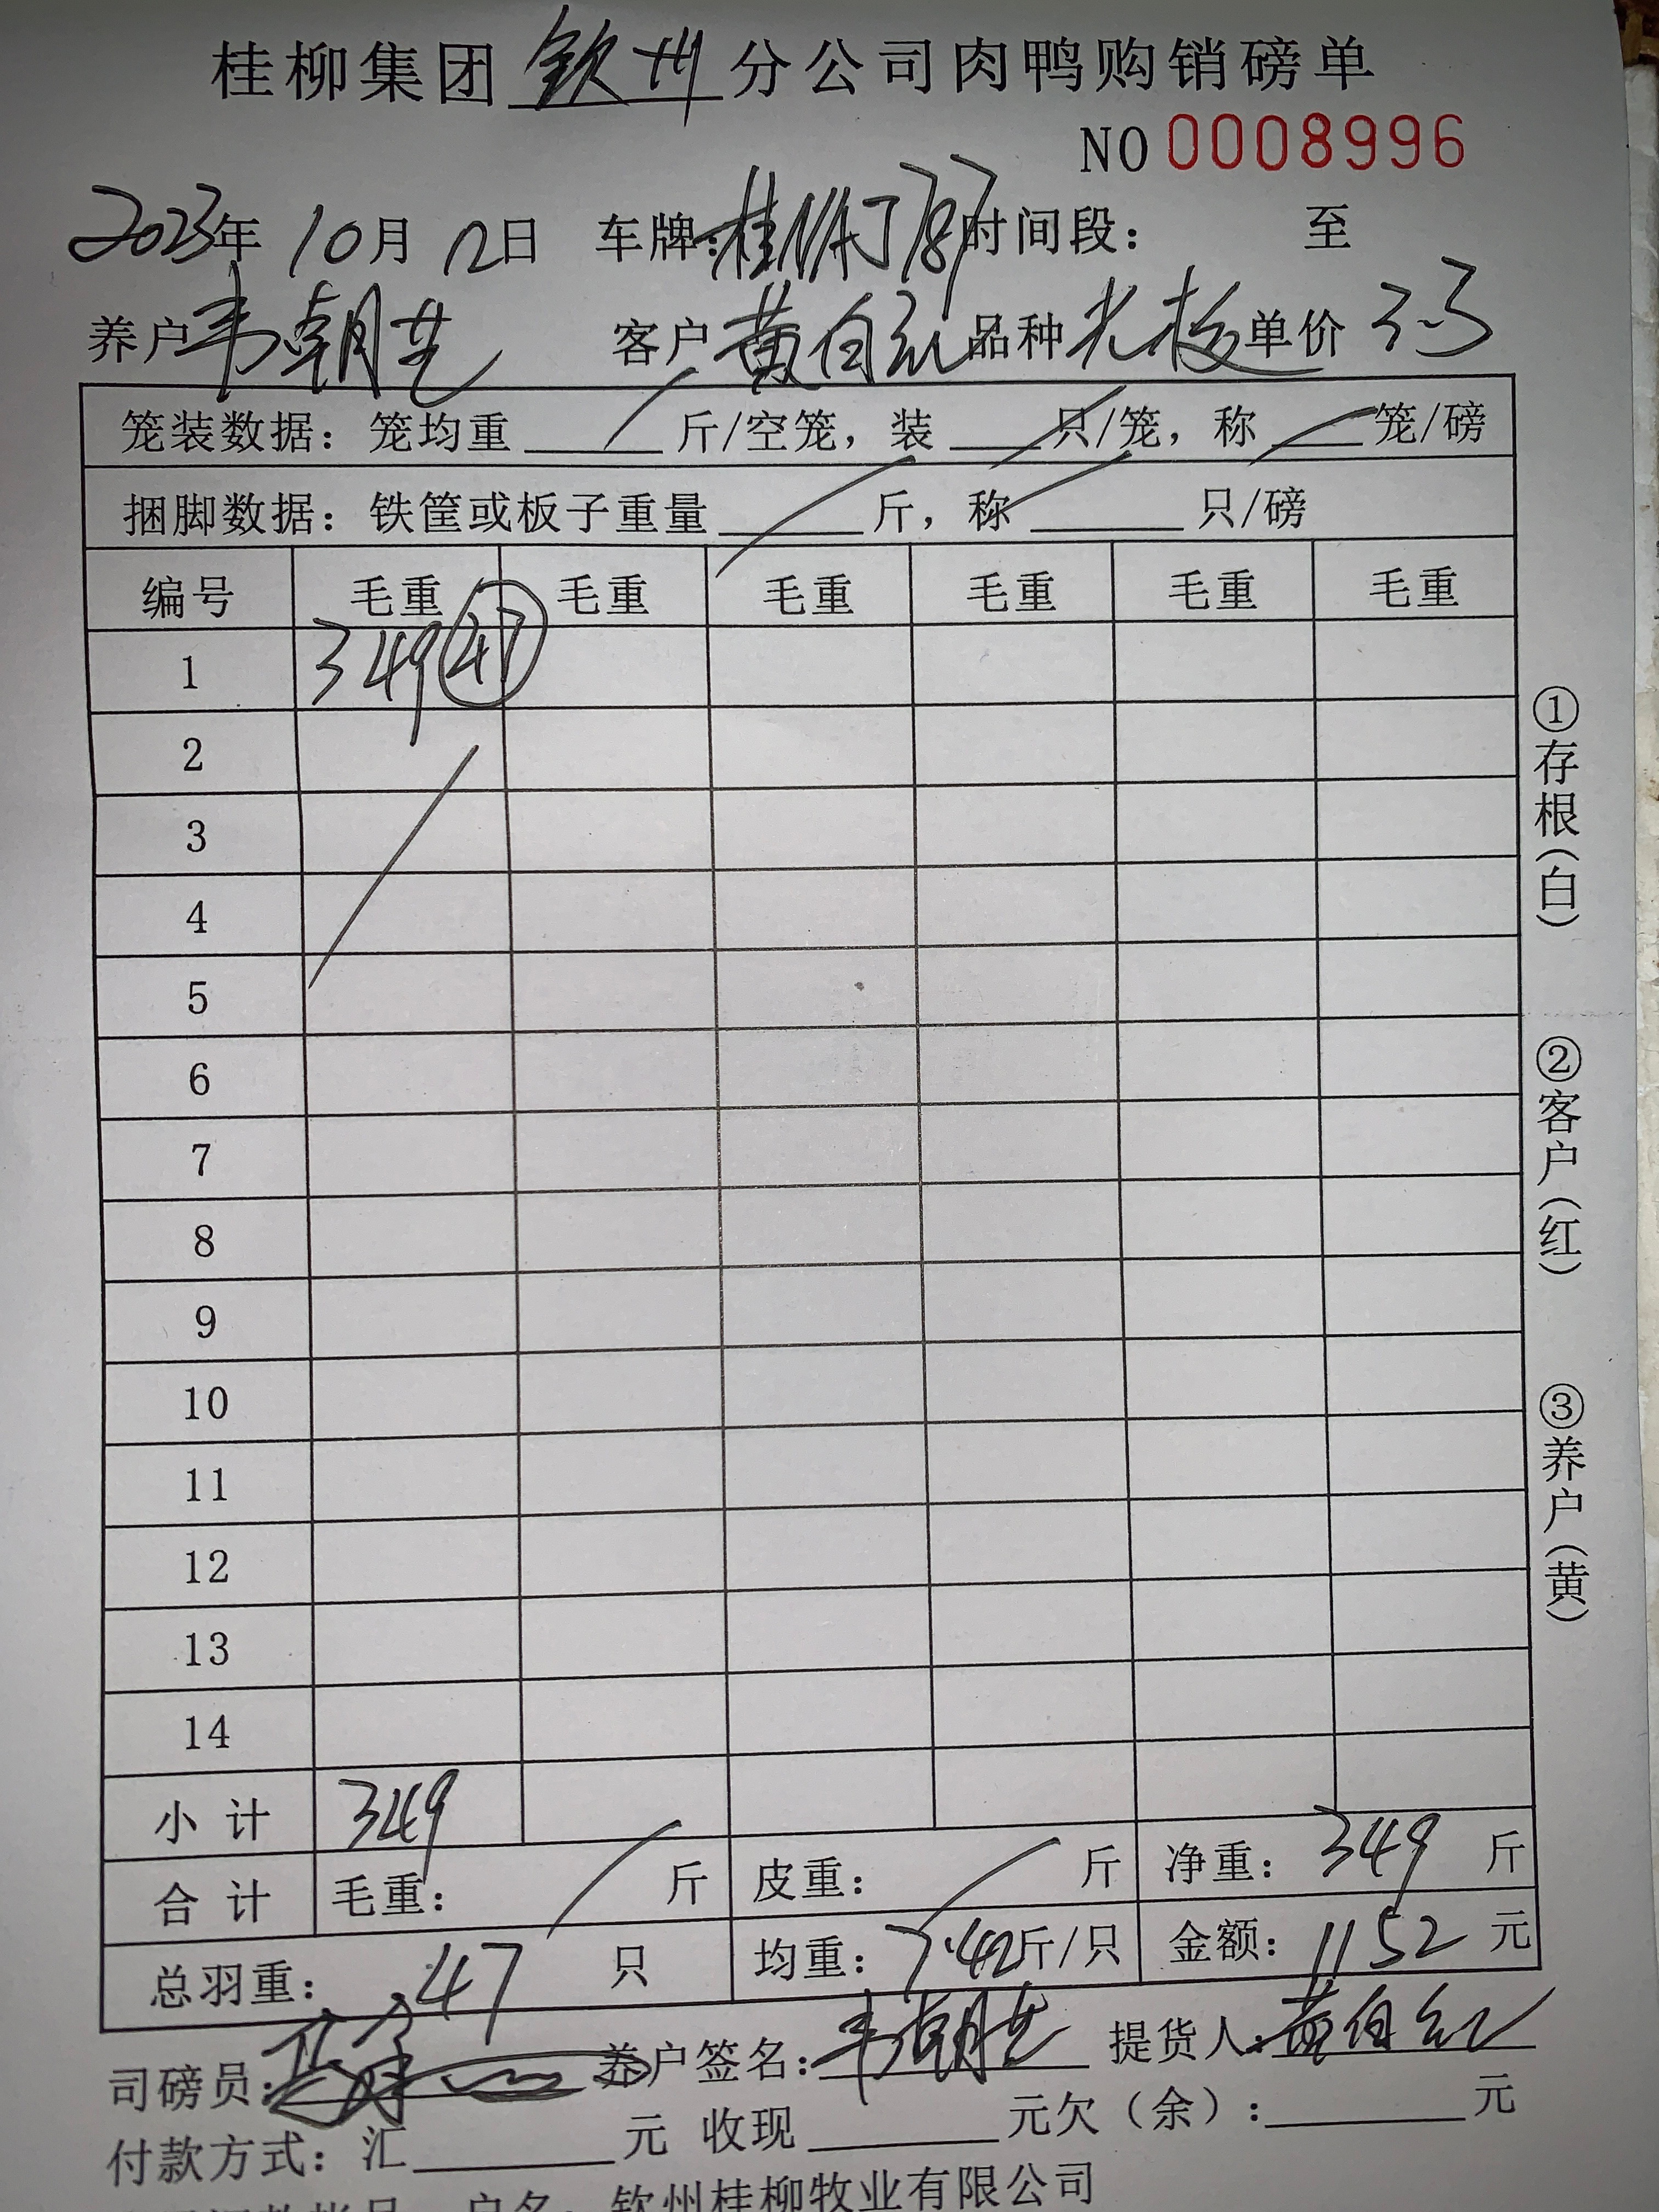 桂柳集团 钦州 分公司肉鸭购销磅单
NO 0008996
2023年 10月 12日 车牌: 时间段: 至
养户 韦朝芝 客户 黄白红 品种 单价 3.3
笼装数据: 笼均重 斤/空笼, 装 只/笼, 称 笼/磅
捆脚数据: 铁筐或板子重量 斤, 称 只/磅
编号 毛重 毛重 毛重 毛重 毛重 毛重
1 349 47
2
3
4
5
6
7
8
9
10
11
12
13
14
小计 349
合计 毛重: 斤 皮重: 斤 净重: 349 斤
总羽重: 47 只 均重: 7.42斤/只 金额: 1152 元
司磅员: 养户签名: 韦朝芝 提货人: 黄白红
付款方式: 汇 元 收现 元欠(余): 元
户名: 钦州桂柳牧业有限公司
①存根(白)
②客户(红)
③养户(黄)